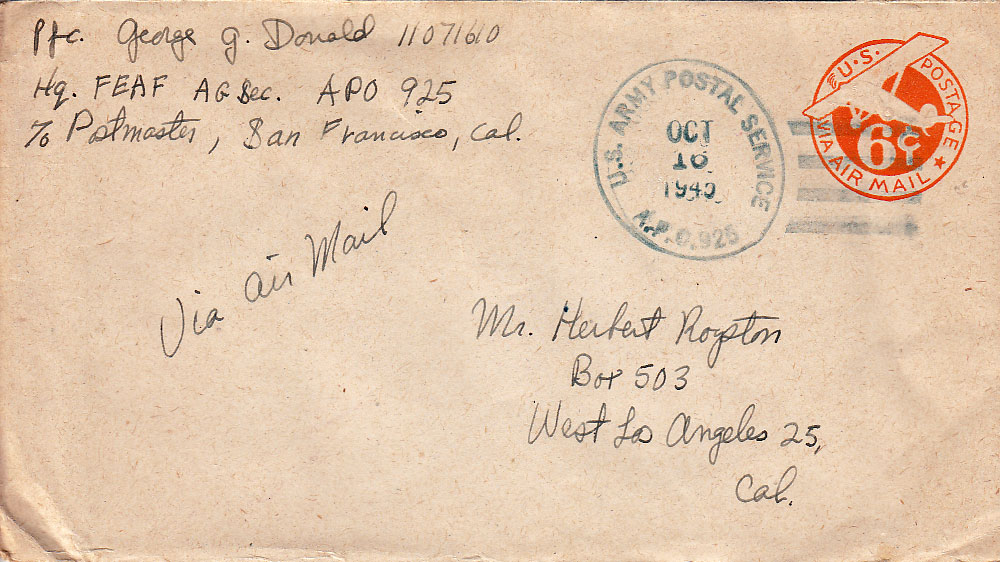 Pfc. George G. Donald 11071610
Hq. FEAF AG Sec. APO 925
℅ Postmaster, San Francisco, Cal.
U.S. ARMY POSTAL SERVICE
OCT
16
1945
A.P.O. 925
U.S. POSTAGE
6¢
VIA AIR MAIL
Via Air Mail
Mr. Herbert Royston
Box 503
West Los Angeles 25,
Cal.